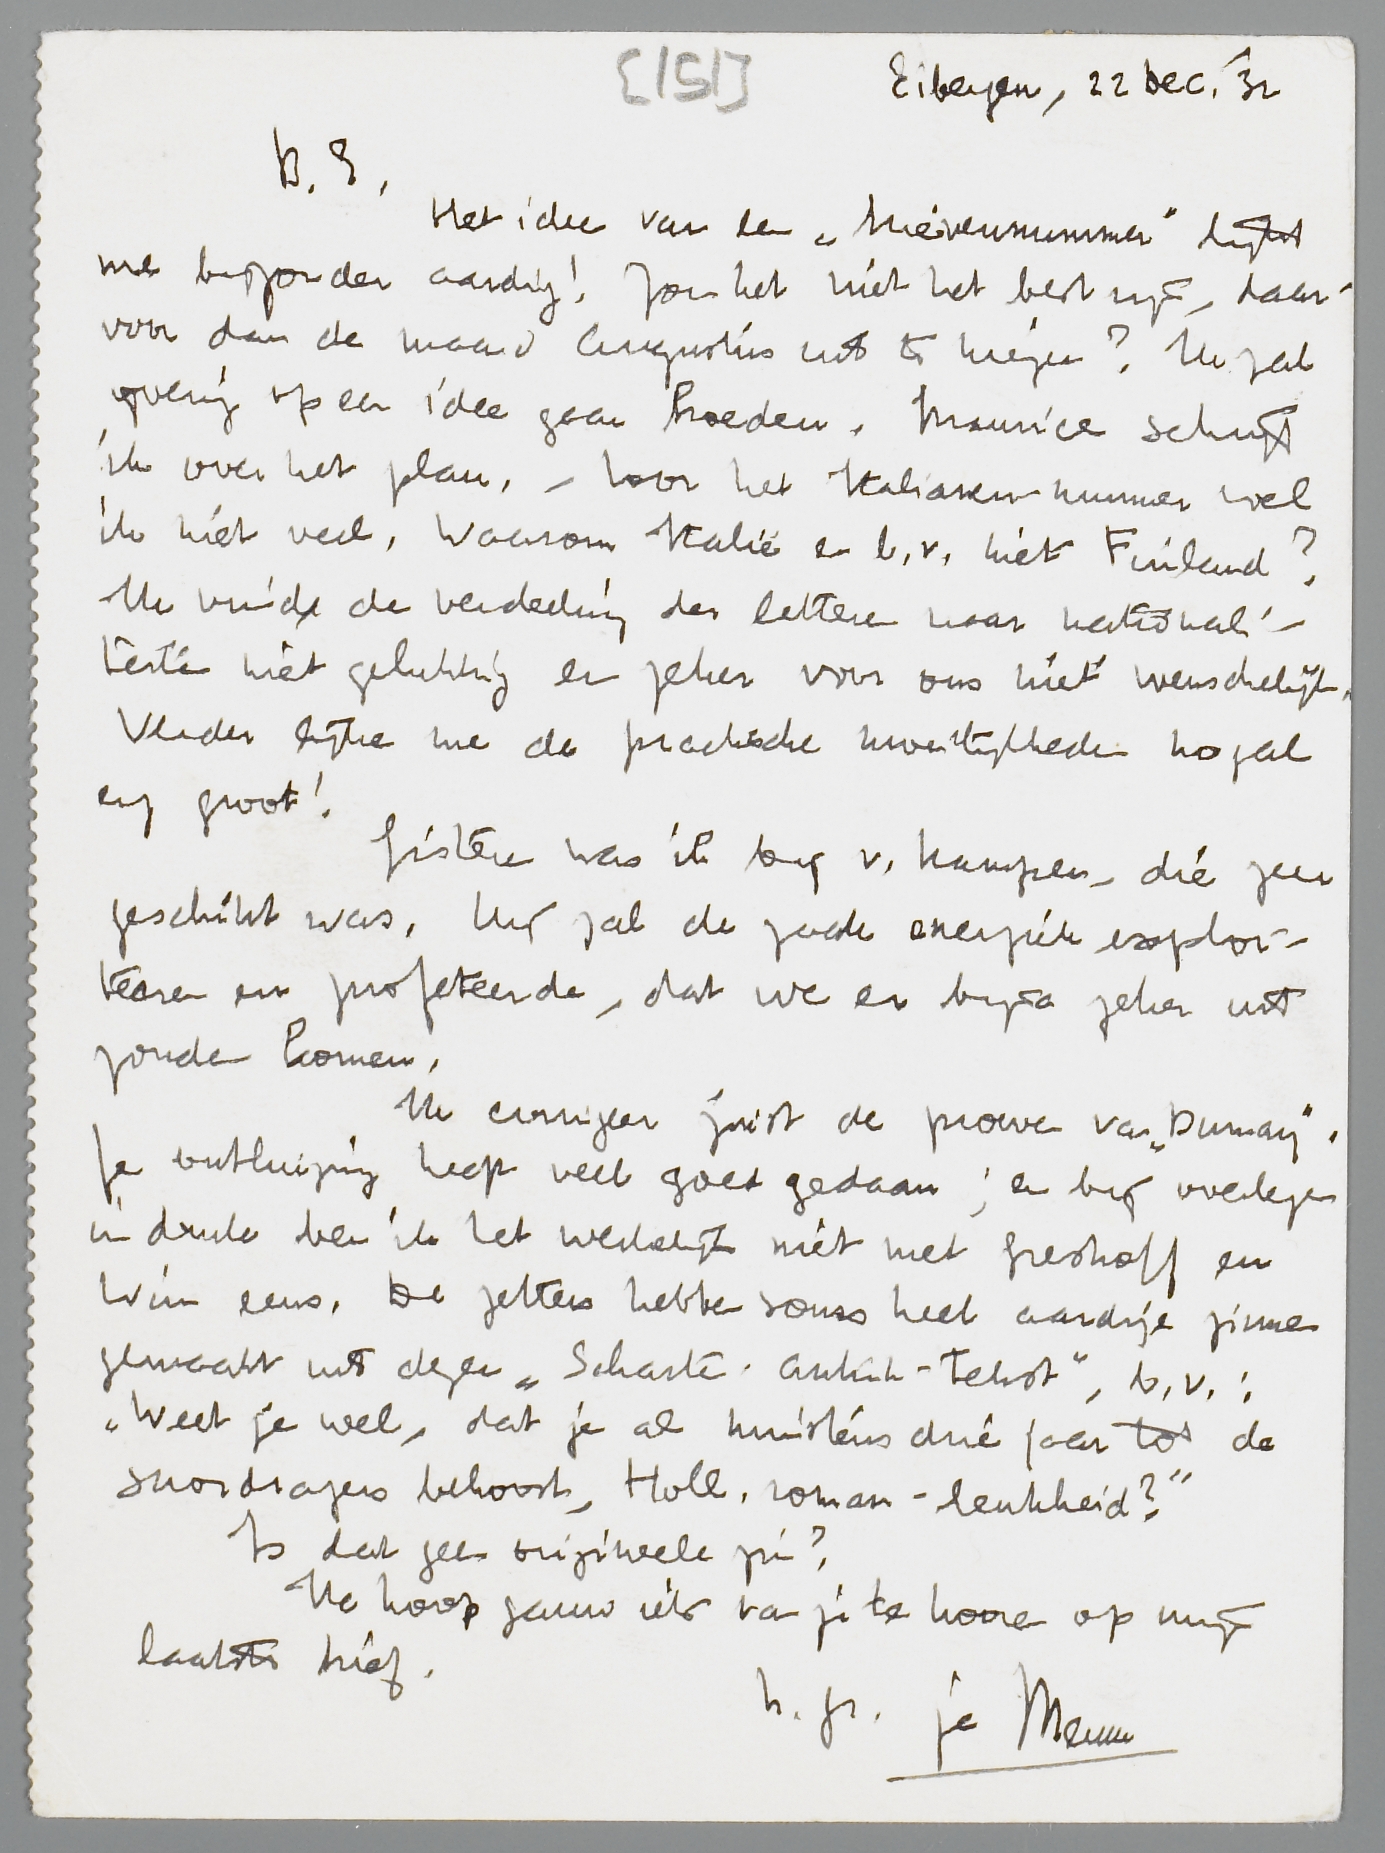 [151]
Eibergen, 22 Dec. '32
B. E.,
Het idee van een „brievennummer" lijkt
me bijzonder aardig! Zou het niet het best zijn, daar-
voor dan de maand Augustus uit te kiezen? Ik zal
ijverig op een idee gaan broeden. Maurice schrijft
ik over het plan. – Voor het Italianen-nummer voel
ik niet veel. Waarom Italië en b.v. niet Finland?
Ik vind de verdeeling der letteren naar nationali-
teiten niet gelukkig en zeker voor ons niet wenschelijk.
Verder lijken me de practische moeilijkheden nogal
erg groot!
Gisteren was ik bij v. Kampen, die zeer
geschikt was. Hij zal de zaak energiek exploi-
teeren en profeteerde, dat we er bijna zeker uit
zouden komen.
Ik corrigeer juist de proeven van „Dumay".
Je ontluizing heeft veel goed gedaan; en bij overlezen
in druk ben ik het werkelijk niet met Greshoff en
Wim eens. De zetters hebben soms heel aardige zinnen
gemaakt uit dezen „Scharten-Antink-Tekst", b.v.:
„Weet je wel, dat je al minstens drie jaar tot de
snordragers behoort, Holl. roman-leukheid?"
Is dat geen origineele zin?
Ik hoop gauw iets van je te hooren op mijn
laatsten brief.
h. gr. je Menno